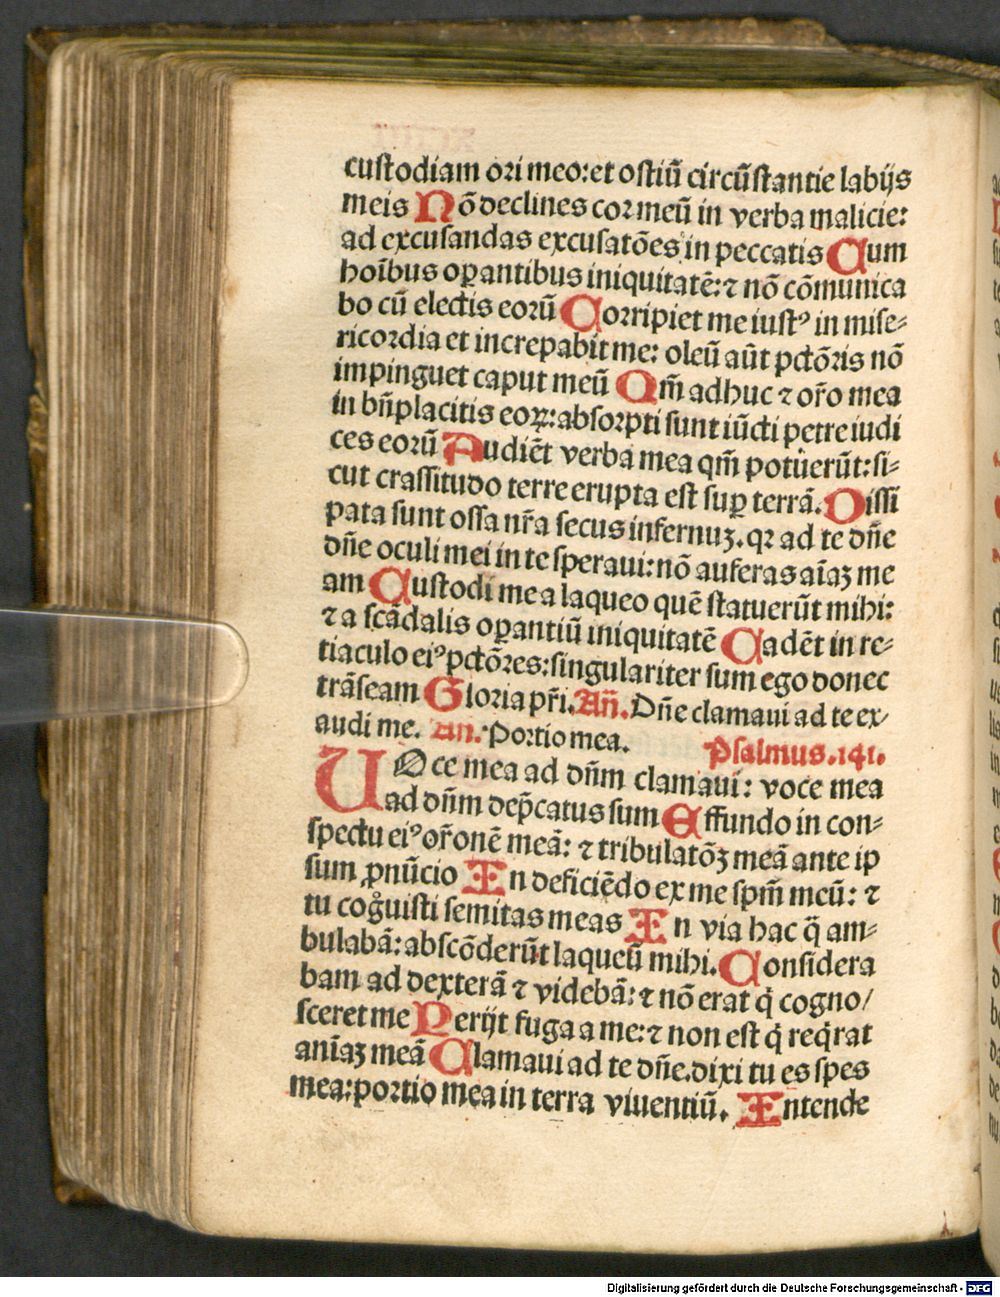 custodiam ori meo: et ostiū circūstantie labijs
meis Nō declines cor meū in verba malicie:
ad excusandas excusatōes in peccatis Cum
hoībus oꝑantibus iniquitatē: ⁊ nō cōmunica
bo cū electis eorū Corripiet me iustꝰ in mise-
ricordia et increpabit me: oleū aūt pctōris nō
impinguet caput meū Qm̄ adhuc ⁊ or̄o mea
in bn̄placitis eoꝝ: absorpti sunt iūcti petre iudi
ces eorū Audiēt verba mea qm̄ potuerūt: si-
cut crassitudo terre erupta est suꝑ terrā. Dissi
pata sunt ossa nr̄a secus infernuꝫ. qꝛ ad te dn̄e
dn̄e oculi mei in te speraui: nō auferas aīaꝫ me
am Custodi me a laqueo quē statuerūt mihi:
⁊ a scādalis oꝑantiū iniquitatē Cadēt in re-
tiaculo eiꝰ pctōres: singulariter sum ego donec
trāseam Gloria pr̄i. An̄. Dn̄e clamaui ad te ex/
audi me. An. Portio mea.
Psalmus. 141.
VOce mea ad dn̄m clamaui: voce mea
ad dn̄m dep̄catus sum Effundo in con-
spectu eiꝰ or̄onē meā: ⁊ tribulatōꝫ meā ante ip
sum ꝓnūcio In deficiēdo ex me spm̄ meū: ⁊
tu cogͦuisti semitas meas In via hac q̄ am-
bulabā: abscōderūt laqueū mihi. Considera
bam ad dexterā ⁊ videbā: ⁊ nō erat q̇ cogno/
sceret me Perijt fuga a me: ⁊ non est q̇ req̇rat
anīaꝫ meā Clamaui ad te dn̄e. dixi tu es spes
mea: portio mea in terra viuentiū. Intende
Digitalisierung gefördert durch die Deutsche Forschungsgemeinschaft - DFG